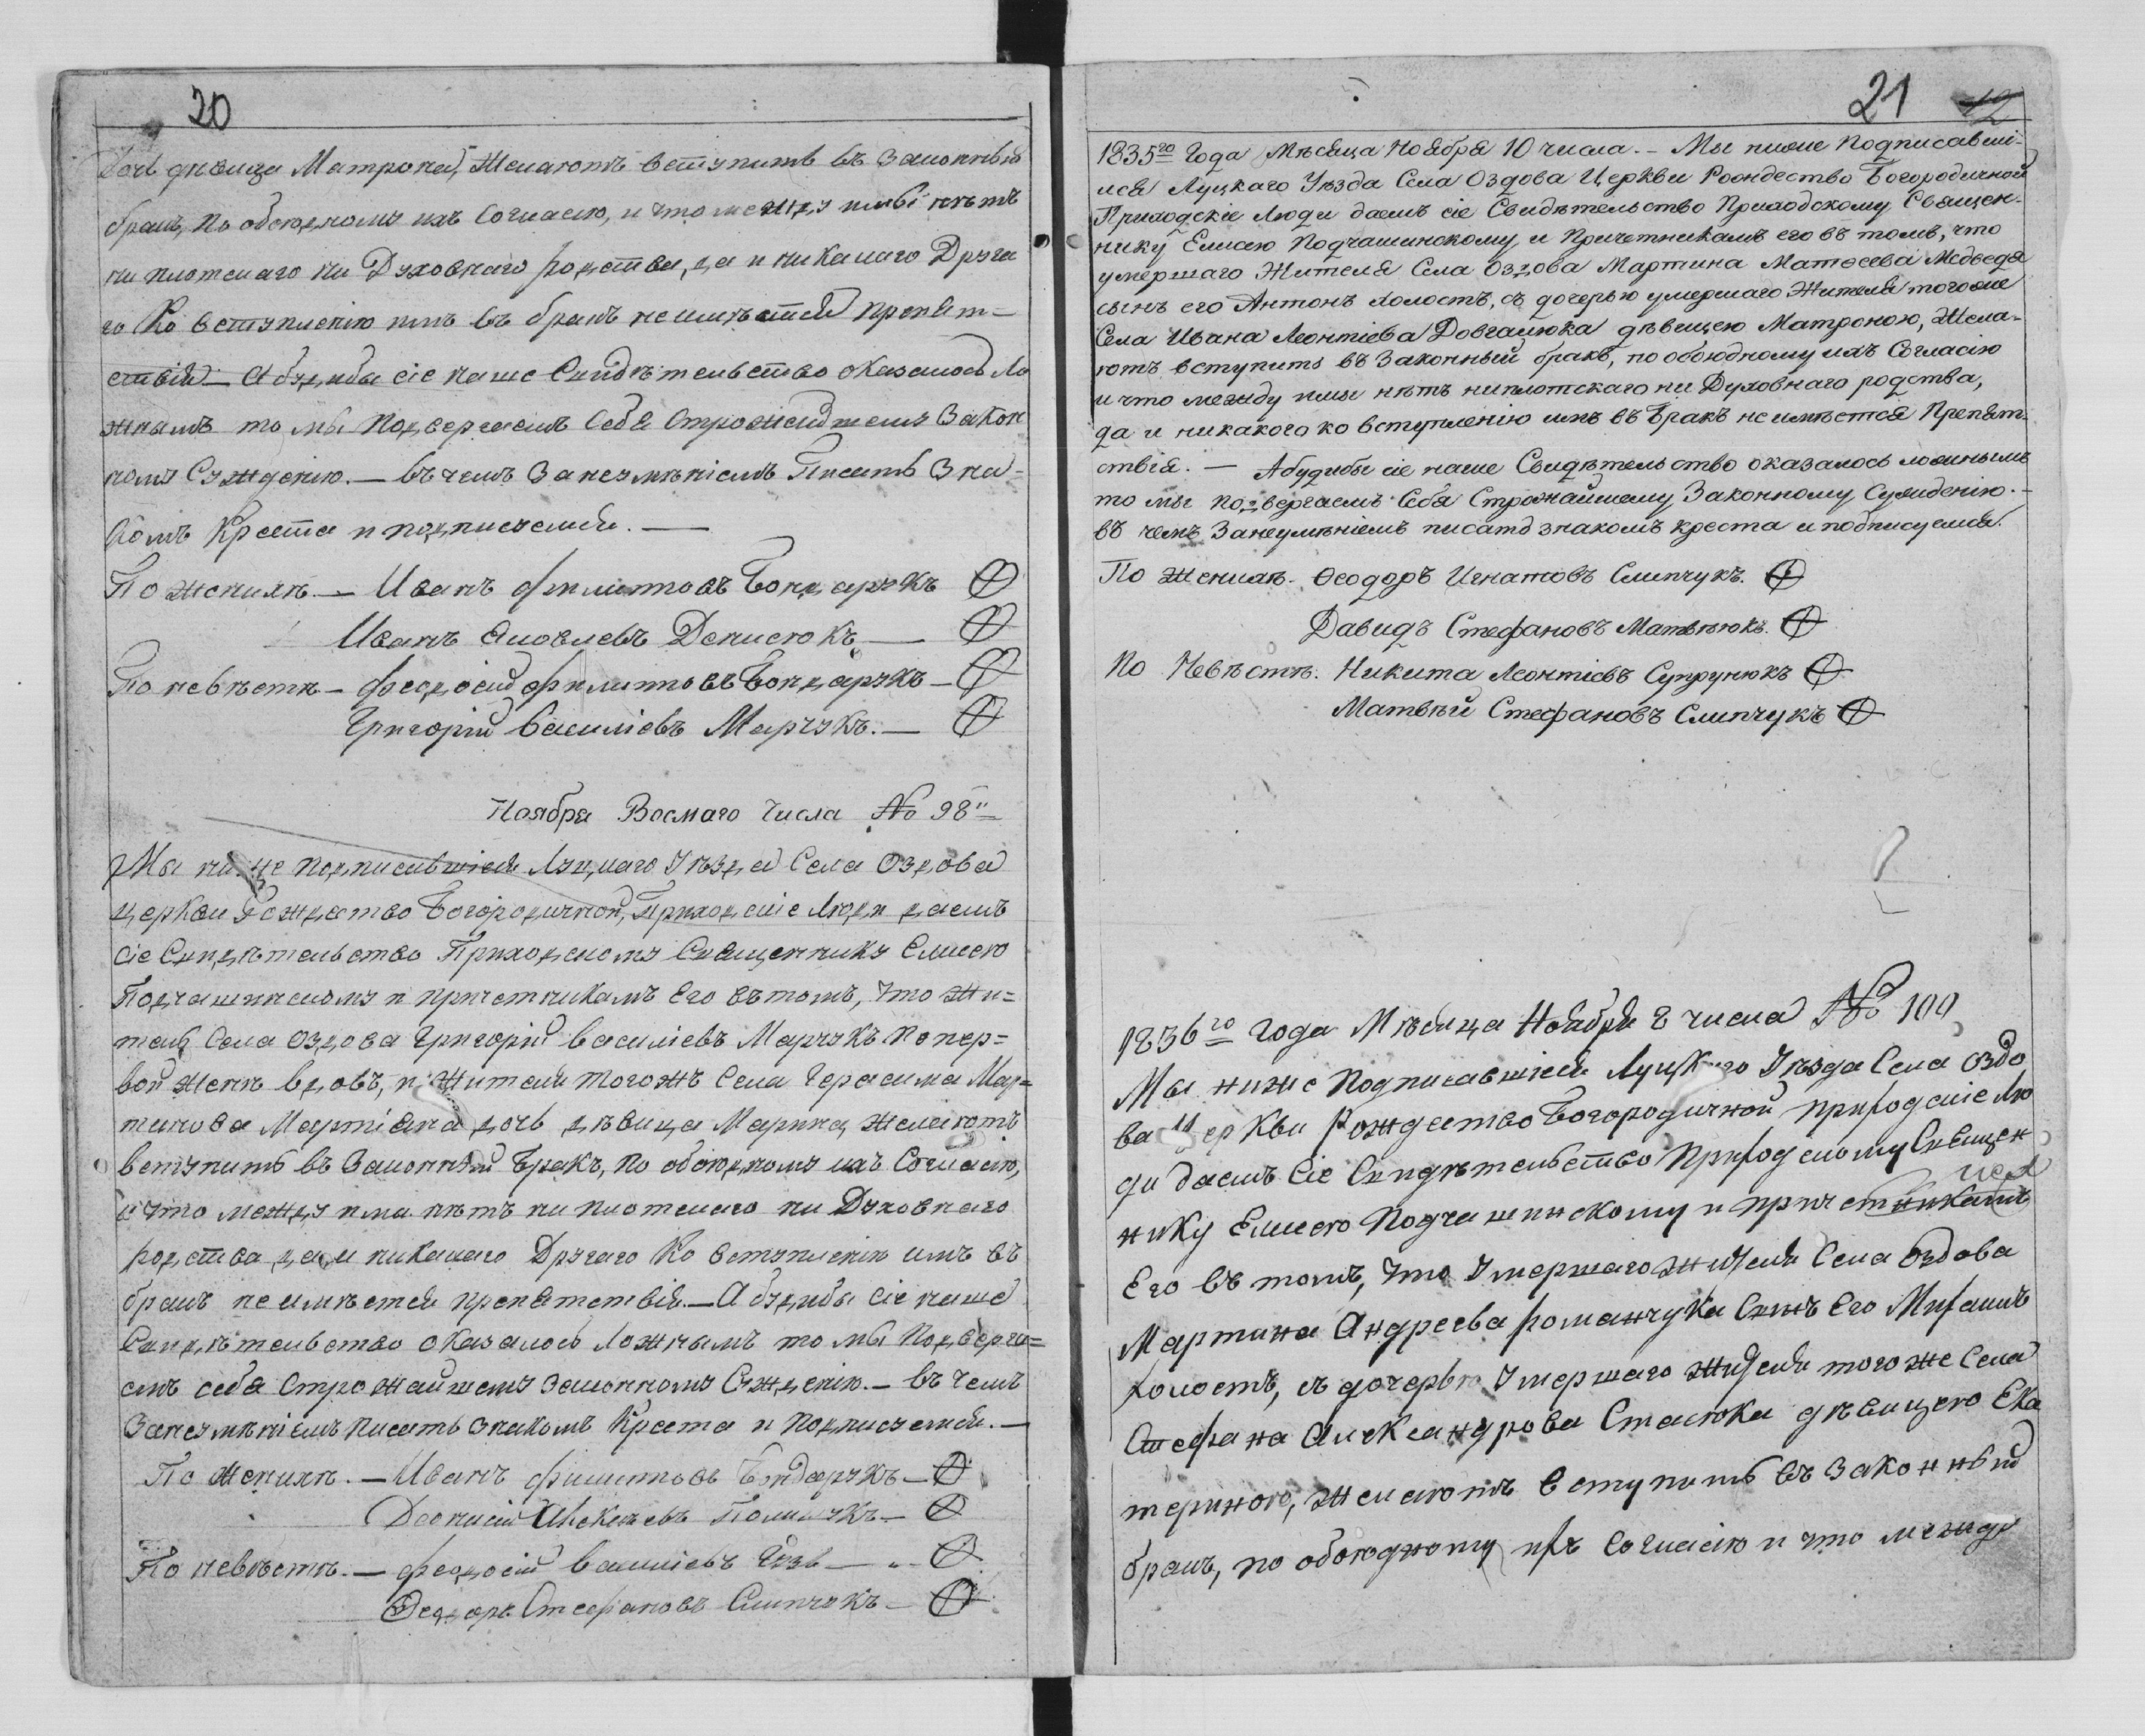 20
дочь девица Матрона, желаютъ вступить въ законный
бракъ, по обоюдному ихъ согласию, и что между ими нѣтъ
ни плотскаго ни Духовнаго родства, да и никакаго Друга
го Ко вступленію имъ въ бракъ не имѣется препят=
ствія. — А будибы сіе наше Свидѣтельство оказалось ло
жнымъ то мы подвергаемъ себя строжайшему закон
ному сужденію. — въ чемъ за неумѣніемъ Писать зна=
комъ Креста и подписуемся. —
По женихѣ. — Иванъ Филиповъ Бондарукъ
Иванъ Яковлевъ Денисюкъ —
По невѣстѣ — Феодосій Филиповъ Бондарукъ —
Григорій Василіевъ Марчукъ. —
Ноября Восмаго Числа № 98"
Мы ниже подписавшіеся Луцкаго Уѣзда Села Оздова
церкви Рождество Богородичной, Приходскіе Люди даемъ
сіе Свидѣтельство Приходскому Священнику Елисею
Подчашинскому и причетникамъ Его въ томъ, что жи=
тель Села Оздова Григорій Василіевъ Марчукъ по пер=
вой женѣ вдовъ, и жителя тогожъ Села Герасима Мар=
тинова дочь девица Марина, желаютъ
вступить въ Законный Бракъ, по обоюдному ихъ Согласію,
и что между ими нѣтъ ни плотскаго ни Духовнаго
родства, да и никакаго Другаго Ко вступленію имъ въ
бракъ не имѣется препятствія. — А будибы сіе наше
Свидѣтельство оказалось ложнымъ то мы подверга=
емъ себя строжайшему законному Сужденію. — въ чемъ
за неумѣніемъ писать знакомъ Креста и подписуемся. —
По женихѣ. — Иванъ Филиповъ Бондарукъ —
Діонисій Алексѣевъ —
По невѣстѣ. — Феодосій Василіевъ —
Ѳеодоръ Стефановъ Слипчукъ —
21 12
1835го Года Мѣсяца Ноября 10 числа. — Мы ниже подписавші-
ися Луцкаго Уѣзда Села Оздова Церкви Рождество Богородичной
Приходскіе Люди даемъ сіе Свидѣтельство Приходскому Священ-
нику Елисею Подчашинскому и Причетникамъ его въ томъ, что
умершаго Жителя Села Оздова Мартина Матѳеева Медведя
сынъ его Антонъ холостъ, съ дочерью умершаго Жителя того же
Села Ивана Леонтіева Довгалюка дѣвицею Матроною, Жела-
ютъ вступить въ Законный бракъ, по обоюдному ихъ Согласію
и что между ими нѣтъ ниплотскаго ни Духовнаго родства,
да и никакого ко вступленію имъ въ Бракъ не имѣется Препят-
ствія. — А будибы сіе наше Свидѣтельство оказалось ложнымъ
то мы подвергаемъ Себя Строжайшему Законному Сужденію. —
въ чемъ Занеумѣніемъ писать знакомъ креста и подписуемся.
По Женихѣ. Ѳеодоръ Игнатовъ Слипчукъ.
Давидъ Стефановъ Матвѣюкъ.
По Невѣстѣ. Никита Леонтіевъ Супрунюкъ
Матвѣй Стефановъ Слипчукъ
1836го Года Мѣсяца Ноября 8 числа № 100
Мы ниже Подписавшіеся Луцкаго Уѣзда Села Оздо
ва Церкви Рождество Богородичной приходскіе Лю
ди даемъ Сіе Свидѣтельство Приходскому Священ
нику Елисею Подчашинскому и причетникамъ
Его въ томъ, что умершаго жителя Села Оздова
Мартина Андреева Романчука Сынъ Его Михаилъ
холостъ, съ дочерью Умершаго жителя того же Села
Стефана Александрова Стасюка дѣвицею Ека
териною, желаютъ вступить въ законный
бракъ, по обоюдному ихъ согласію и что между